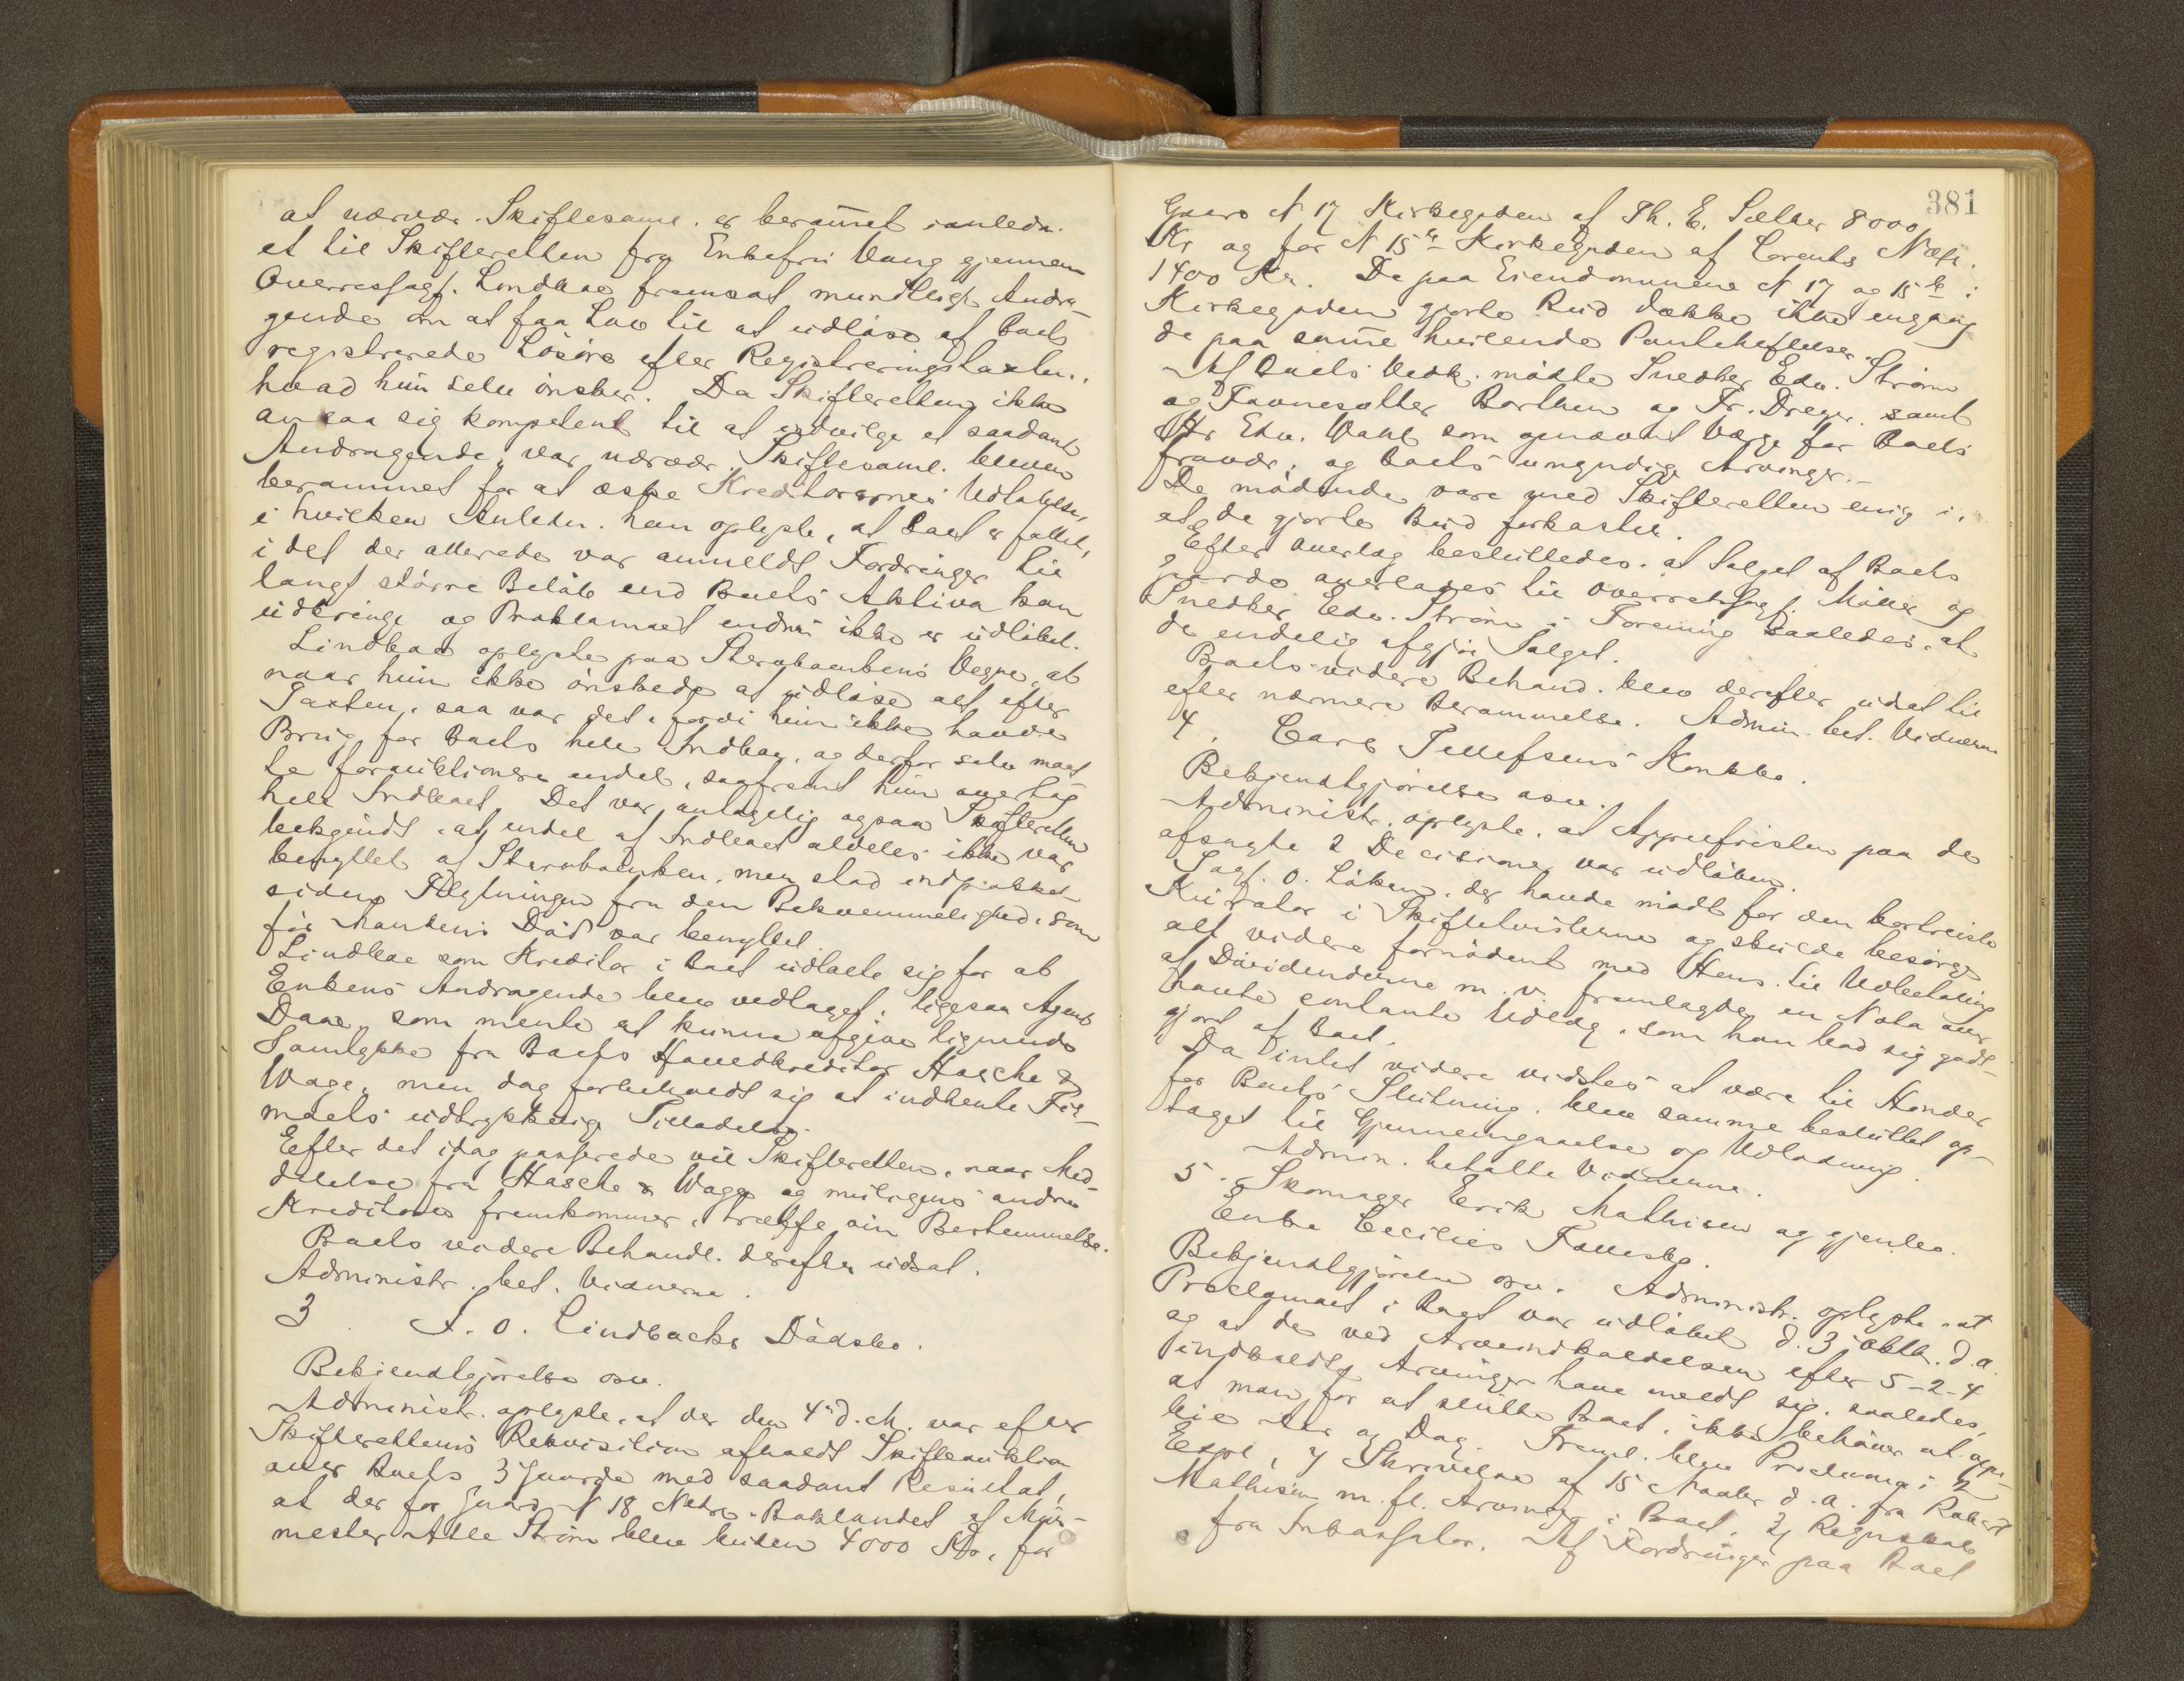 at nærvær. Skiftesaml. er beram̅et i anledn.
et til Skifteretten fra Enkefru Vang gjennem
Overretssagf. Lindboe fremsat mundtligt Andra-
gende om at faa Lov til at udløse af Boets
registrerede Løsøre efter Registreringstaxten,
hvad hun selv ønsker. Da Skifteretten ikke
ansaa sig kompetent til at indvilge et saadant
Andragende, var nærvær. Skiftesaml. bleven
berammet for at æske Kreditorernes Udtalelse,
i hvilken Anledn. han oplyste, at Boet er fallit,
i det der allerede var anmeldt Fordringer til
langt større Beløb end Boets Aktiva kan
udbringe og Proklamaet endnu ikke er udløbet.
Lindboe oplyste paa Stervboenkens Vegne, at
naar hun ikke ønskede at udløse alt efter
Taxten, saa var det, fordi hun ikke havde
Brug for Boets hele Indbo, og derfor selv maat-
te forauktionere endel, saafremt hun overtog
hele Indboet. Det var antagelig ogsaa Skifteretten
bekjendt, at endel af Indboet aldeles ikke var
benyttet af Stervboenken, men stod indpakket
siden Flytningen fra den Bekvemmelighed, som
før Mandens Død var benyttet.
Lindboe som Kreditor i Boet udtalte sig for at
Enkens Andragende blev vedtaget, ligesaa Agent
Daae, som mente at kunne afgive lignende
Samtykke fra Boets Hovedkreditor Hasche &
Woge, men dog forbeholdt sig at indhente Fir-
maets udtrykkelige Tilladelse.
Efter det idag passerede vil Skifteretten, naar Med-
delelse fra Hasche & Woge og muligens andre
Kreditores fremkommer, træffe sin Bestemmelse.
Boets videre Behandl. derefter udsat.
Administr. bet. Vidnerne.
3. J. O. Lindbacks Dødsbo.
Bekjendtgjørelse osv.
Administr. oplyste, at der den 4de d. M. var efter
Skifterettens Rekvisition afholdt Skifteauktion
over Boets 3 Gaarde med saadant Resultat,
at der for Gaard N 18 Nedre Baklandet af Mur-
mester Atle Strøm blev buden 4000 Kr, for
381
Gaard N 17 Kirkegaden af Th. E. Sælter 8000
Kr og for N 15b Kirkegaden af Lorents Næss
1400 Kr. De paa Eiendommene N 17 og 15b i
Kirkegaden gjorte Bud dække ikke engang
de paa sam̅e hvilende Pantehæftelser.
Af Boets Vedk. mødte Snedker Edv. Strøm
og Favnesætter Barthen og Fr. Dreyer samt
Hr Edv. Wahl som opnævnt Værge for Boets
fravær. og Boets umyndige Arvinger.
De mødende vare med Skifteretten enig i,
at de gjorte Bud forkastes.
Efter Overlæg besluttedes, at Salget af Boets
gaarde overlades til Overretssagf. Møller og
Snedker Edv. Strøm i Forening saaledes, at
de endelig afgjør Salget.
Boets videre Behand. blev derefter udsat til
efter nærmere Berammelse. Admin. bet. Vidnerne
4. Carl Tellefsens Konkbo.
Bekjendtgjørelse osv.
Administr. oplyste, at Appelfristen paa de
afsagte 2 Decisioner var udløben.
Sagf. O. Løken, der havde mødt for den bortreiste
Kurator i Skiftetvisterne og skulde besørge
alt videre fornødent med Hens. til Udbetaling
af Dividenderne m. v. fremlagde en Nota over
havte contante Udlæg, som han bad sig godt-
gjort af Boet.
Da intet videre vidstes at være til Hinder
for Boets Slutning, blev samme besluttet op-
taget til Gjennemgaaelse og Udlodning.
Admin. betalte Vidnerne.
5. Skomager Erik Mathisen og gjenlev.
Enke Cecilies Fællesbo.
Bekjendtgjørelse osv. Administr. oplyste, at
Proclamaet i Boet var udløbet d. 3 Oktb. d. a.
og at de ved Arveindkaldelsen efter 5-2-4
indkaldte Arvinger have meldt sig, saaledes,
at man for at slutte Boet, ikke behøver at oppe-
bie Aar og Dag. Freml. blev Proclama i 2
Expl, 1/ Skrivelse af 15 Marts d. a. fra Robert
Mathisen m. fl. Arvinger i Boet, 2/ Regnskab
fra Inkassator. Af Fordringer paa Boet